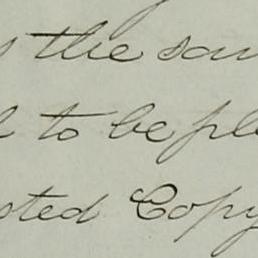 the sam
to be ple
sted Copy